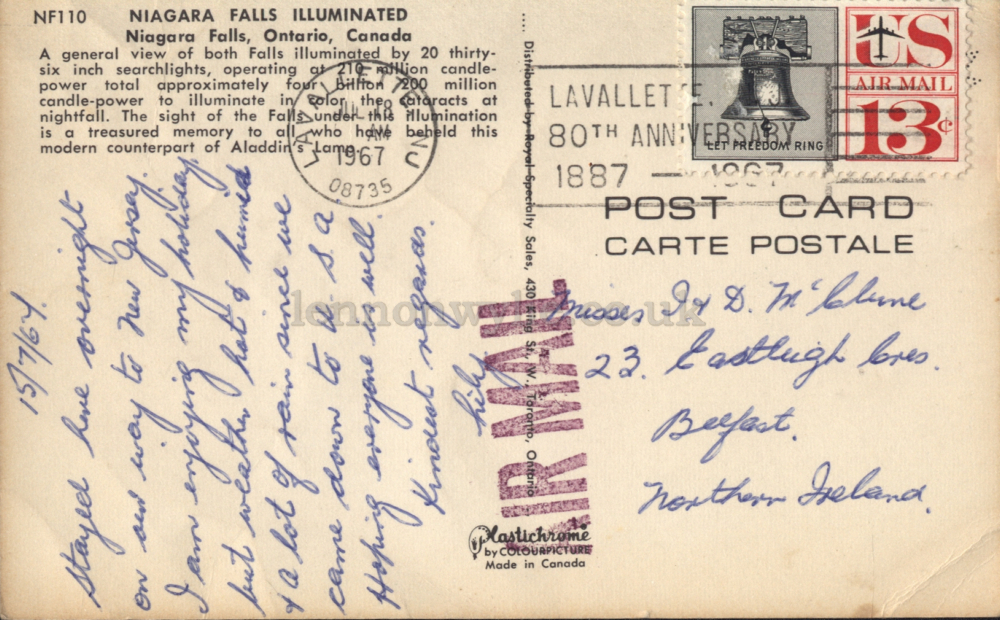 NF110 NIAGARA FALLS ILLUMINATED
Niagara Falls, Ontario, Canada
A general view of both Falls illuminated by 20 thirty-
six inch searchlights, operating at 210 million candle-
power total approximately four billion 200 million
candle-power to illuminate in color the cataracts at
nightfall. The sight of the Falls under this illumination
is a treasured memory to all who have beheld this
modern counterpart of Aladdin's Lamp.
LAVALLETTE NJ
JUL 18
AM
1967
08735
LAVALLETTE.
80TH ANNIVERSARY
1887 — 1967
LET FREEDOM RING
US
AIR MAIL
13¢
POST CARD
CARTE POSTALE
.... Distributed by Royal Specialty Sales, 430 King St. W. Toronto, Ontario
15/7/67.
Stayed here overnight
on our way to New Jersey.
I am enjoying my holiday
but weather hot & humid
& a lot of rain since we
came down to U.S.A
Hoping everyone is well
Kindest regards.
AIR MAIL
Misses I & D. McClune
23. Eastleigh Cres.
Belfast.
Northern Ireland.
Plastichrome
by COLOURPICTURE
Made in Canada
lennonwylie.co.uk